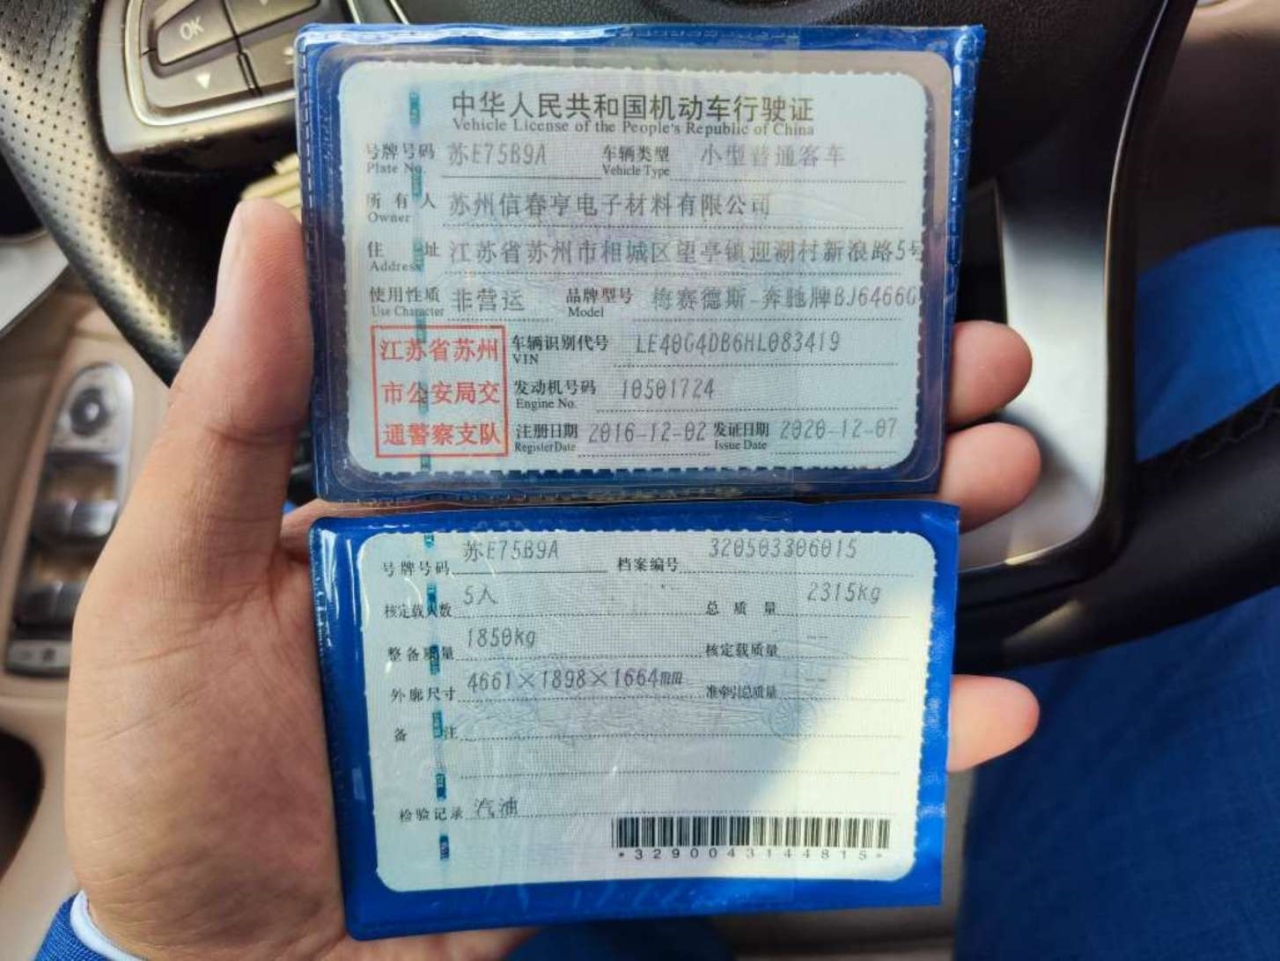 OK
中华人民共和国机动车行驶证
Vehicle License of the People's Republic of China
号牌号码 苏E75B9A 车辆类型 小型普通客车
Plate No. Vehicle Type
所有人 苏州信春亨电子材料有限公司
Owner
住址 江苏省苏州市相城区望亭镇迎湖村新浪路5号
Address
使用性质 非营运 品牌型号 梅赛德斯-奔驰牌BJ6466G
Use Character Model
江苏省苏州
市公安局交
通警察支队
车辆识别代号 LE40G4DB6HL083419
VIN
发动机号码 10501724
Engine No.
注册日期 2016-12-02 发证日期 2020-12-07
Register Date Issue Date
号牌号码 苏E75B9A 档案编号 320503306015
核定载人数 5人 总质量 2315kg
整备质量 1850kg 核定载质量 --
外廓尺寸 4661×1898×1664mm 准牵引总质量 --
备注
检验记录 汽油
*3290043144815*